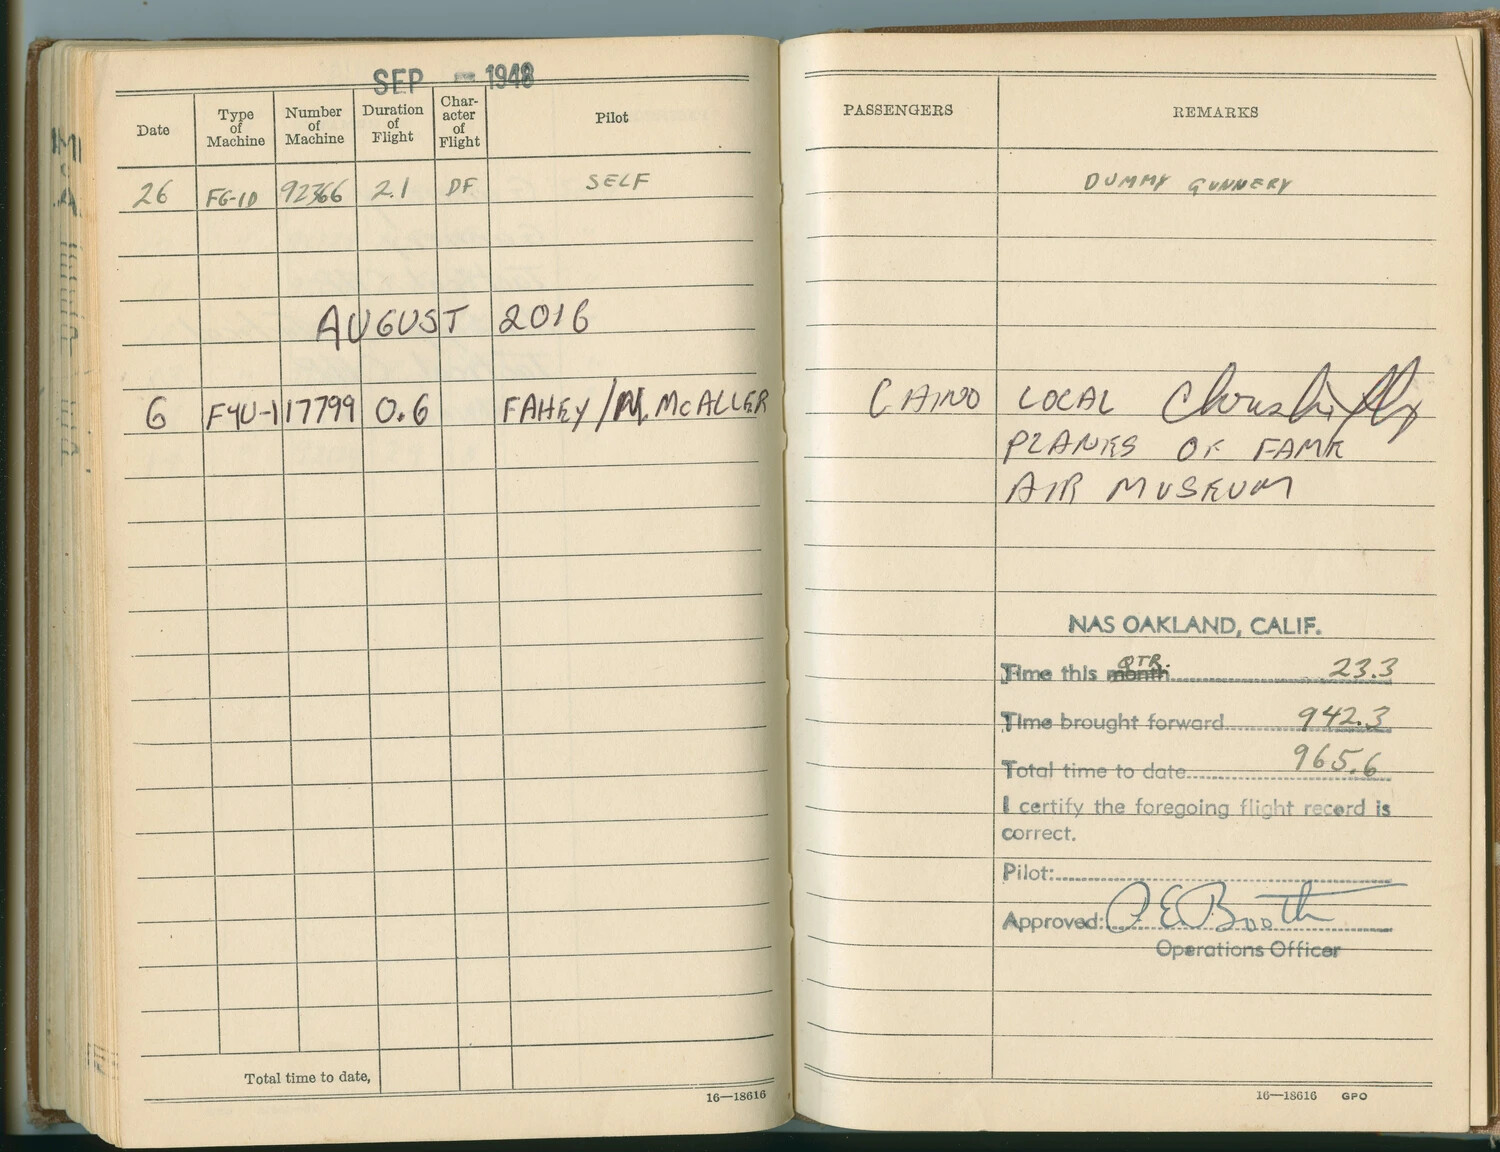 SEP 1948
Date
Type of Machine
Number of Machine
Duration of Flight
Char-acter of Flight
Pilot
PASSENGERS
REMARKS
26 FG-1D 92366 2.1 DF SELF DUMMY GUNNERY
AUGUST 2016
6 F4U-1 17799 0.6 FAHEY/M. McALLER CHINO LOCAL
PLANES OF FAME
AIR MUSEUM
NAS OAKLAND, CALIF.
Time this month QTR. 23.3
Time brought forward 942.3
Total time to date 965.6
I certify the foregoing flight record is
correct.
Pilot:
Approved: P E Booth
Operations Officer
Total time to date,
16—18616
16—18616 GPO